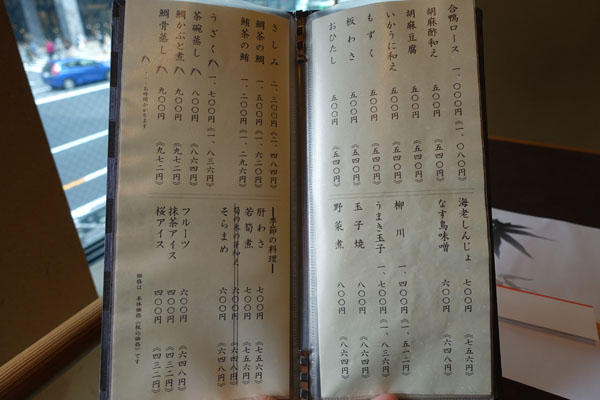 合鴨ロース 一、〇〇〇円（一、〇八〇円）
胡麻酢和え 五〇〇円（五四〇円）
胡麻豆腐 五〇〇円（五四〇円）
いかうに和え 五〇〇円（五四〇円）
もずく 五〇〇円（五四〇円）
板わさ 五〇〇円（五四〇円）
おひたし 五〇〇円（五四〇円）
海老しんじょ 七〇〇円（七五六円）
なす鳥味噌 六〇〇円（六四八円）
柳川 一、四〇〇円（一、五一二円）
うまき玉子 一、七〇〇円（一、八三六円）
玉子焼 八〇〇円（八六四円）
野菜煮 八〇〇円（八六四円）
さしみ 二、三〇〇円（二、四八四円）
鯛茶の鯛 一、五〇〇円（一、六二〇円）
鮪茶の鮪 一、二〇〇円（一、二九六円）
うざく 一、七〇〇円（一、八三六円）
茶碗蒸し 八〇〇円（八六四円）
鯛かぶと煮 九〇〇円（九七二円）
鯛骨蒸し 九〇〇円（九七二円）
・・・お時間かかります
季節の料理
肝わさ 七〇〇円（七五六円）
若筍煮 七〇〇円（七五六円）
六〇〇円（六四八円）
そらまめ 六〇〇円（六四八円）
フルーツ 六〇〇円（六四八円）
抹茶アイス 四〇〇円（四三二円）
桜アイス 四〇〇円（四三二円）
価格は、本体価格（税込価格）です